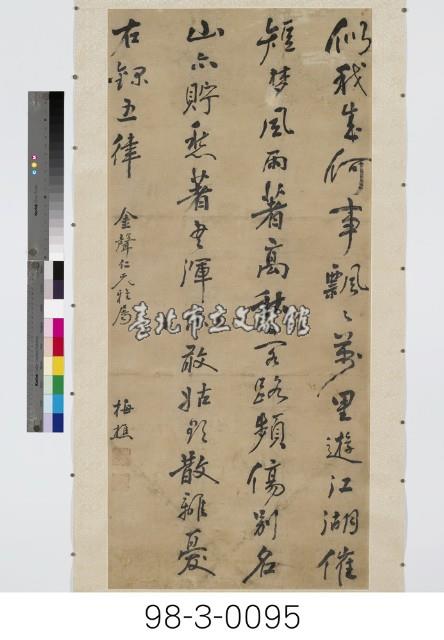 似我成何事飄々萬里遊江湖催
短夢風雨著高秋客路頻傷別名
山亦貯愁著書渾敢姑欲散離憂
右錄五律
金聲仁兄雅屬
梅樵
臺北市立文獻館
98-3-0095